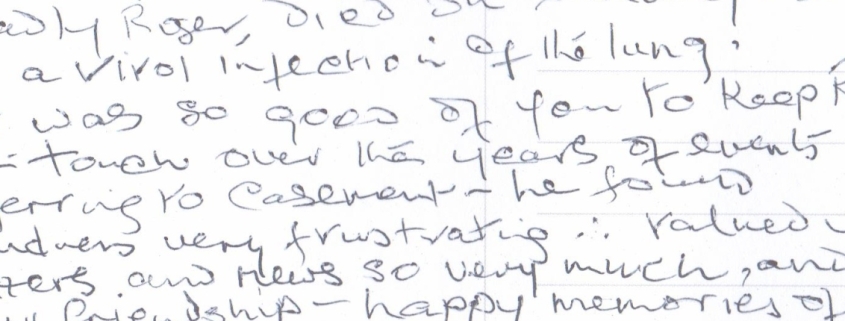 adly Roger, died on
a viral infection of the lung.
was so good of you to keep
- touch over the years of events
erring to Casement - he found
very frustrating ∴ valued
ters and news so very much, and
friendship - happy memories of